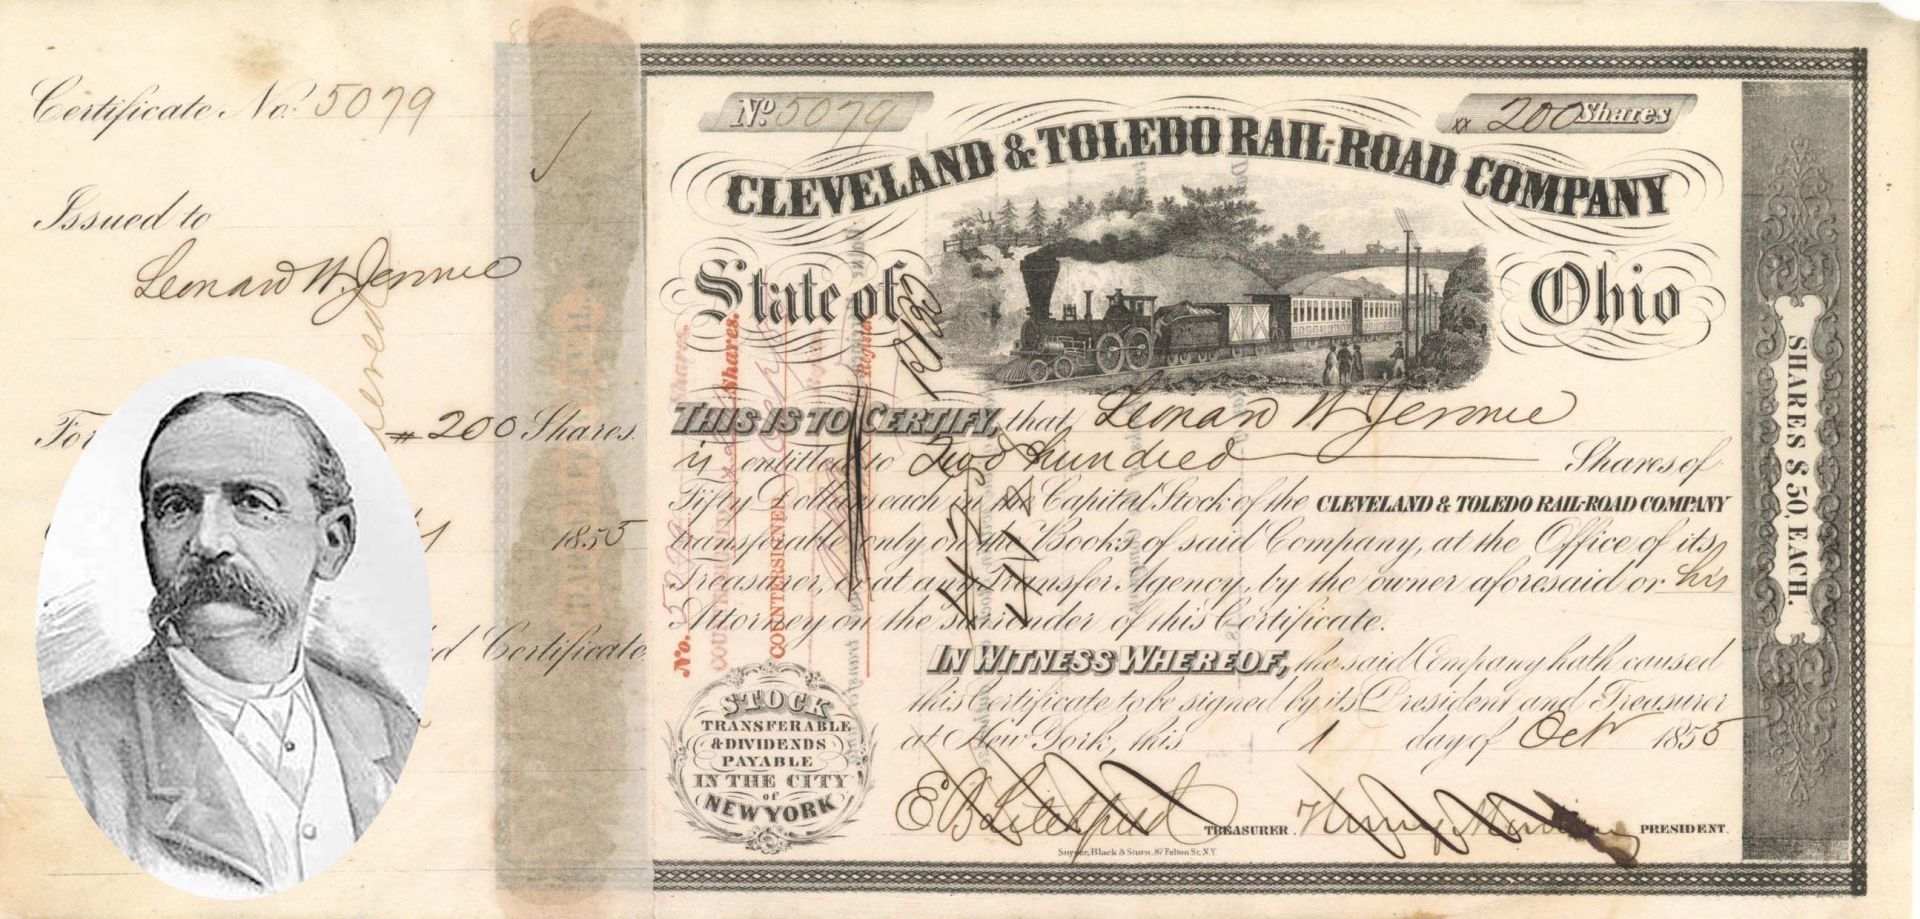 Certificate No. 5079
Issued to
Leonard W. Jerome
For # 200 Shares
1855
d Certificate
No. 5079
xx 200 Shares
CLEVELAND & TOLEDO RAIL-ROAD COMPANY
State of Ohio
THIS IS TO CERTIFY, that Leonard W. Jerome
is entitled to Two hundred Shares of
Fifty Dollars each in the Capital Stock of the CLEVELAND & TOLEDO RAIL-ROAD COMPANY
transferable only on the Books of said Company, at the Office of its
Treasurer, or at any Transfer Agency, by the owner aforesaid or his
Attorney on the surrender of this Certificate.
IN WITNESS WHEREOF, the said Company hath caused
this Certificate to be signed by its President and Treasurer
at New York, this 1 day of Oct 1855
TREASURER.
PRESIDENT.
Snyder, Black & Sturn, 87 Fulton St. N.Y.
STOCK
TRANSFERABLE
& DIVIDENDS
PAYABLE
IN THE CITY
of
NEW YORK
No.
Shares.
COUNTERSIGNED
Shares.
Register
SHARES $50, EACH.